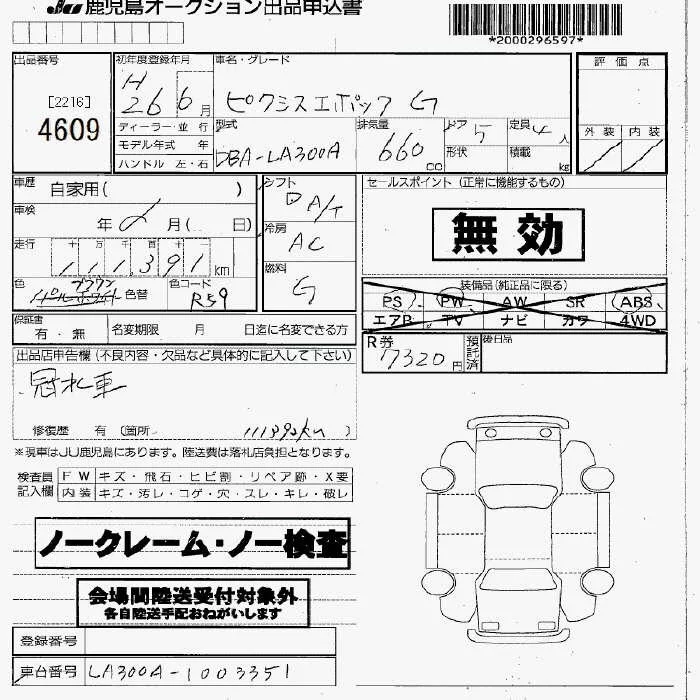 JU 鹿児島オークション出品申込書
*2000296597*
出品番号
[2216]
4609
初年度登録年月
H 26 6月
車名・グレード
ピクシスエポック G
評価点
外装 内装
ディーラー・並行
モデル年式 年
ハンドル 左・右
型式
DBA-LA300A
排気量
660 cc
ドア 5
形状
定員 4人
積載 kg
車歴 自家用( )
車検 年 月( 日)
走行 十万千百十
111,391 km
色
色替
色コード
R59
シフト
A/T
冷房
AC
燃料
G
セールスポイント (正常に機能するもの)
無効
装備品(純正品に限る)
PS PW AW SR ABS
エアB TV ナビ カワ 4WD
保証書
有・無
名変期限 月 日迄に名変できる方
R券
7320円
預託済
後日品
出品店申告欄 (不良内容・欠品など具体的に記入して下さい)
冠水車
修復歴 有 (箇所 111392km
※現車はJU鹿児島にあります。陸送費は落札店負担となります。
検査員記入欄
FW キズ・飛石・ヒビ割・リペア跡・X要
内装 キズ・汚レ・コゲ・穴・スレ・キレ・破レ
ノークレーム・ノー検査
会場間陸送受付対象外
各自陸送手配おねがいします
登録番号
車台番号 LA300A-1003351